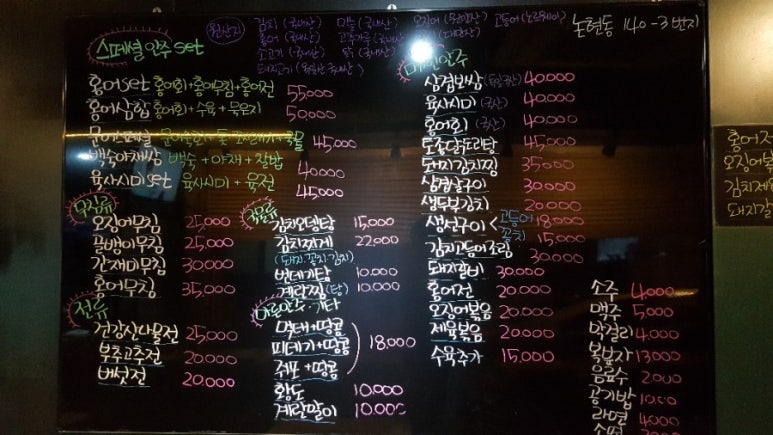 원산지
김치 (국내산) 마늘 (국내산) 오징어 (원양산) 고등어 (노르웨이)
홍어 (국내산) 고춧가루 (국내산)
소고기 (국내산) 닭 (국내산)
돼지고기
논현동 140-3 번지
스페셜 안주 set
홍어set 홍어회+홍어무침+홍어전 55,000
홍어삼합 홍어회+수육+묵은지 50,000
45,000
백숙야채쌈 백숙+야채+찰밥 40,000
육사시미set 육사시미+육전 45,000
무침류
오징어무침 25,000
골뱅이무침 25,000
간재미무침 30,000
홍어무침 35,000
전류
건강산나물전 25,000
부추고추전 20,000
버섯전 20,000
국물류
김치오뎅탕 15,000
김치찌개 22,000
(돼지.꽁치.김치)
번데기탕 10,000
계란찜(탕) 10,000
마른안주.기타
먹태+땅콩
피데기+땅콩 18,000
쥐포+땅콩
황도 10,000
계란말이 10,000
메인안주
삼겹보쌈 40,000
육사시미 (국산) 40,000
홍어회 (국산) 40,000
토종닭도리탕 45,000
돼지김치찜 35,000
삼겹살구이 30,000
생두부김치 20,000
생선구이 < 고등어 18,000
꽁치 15,000
김치고등어조림 30,000
돼지갈비 30,000
홍어전 20,000
오징어볶음 20,000
제육볶음 20,000
수육추가 15,000
소주 4,000
맥주 5,000
막걸리 4,000
복분자 13000
음료수 2,000
공기밥 1000
라면 4000
소면
홍어
오징어
김치
돼지